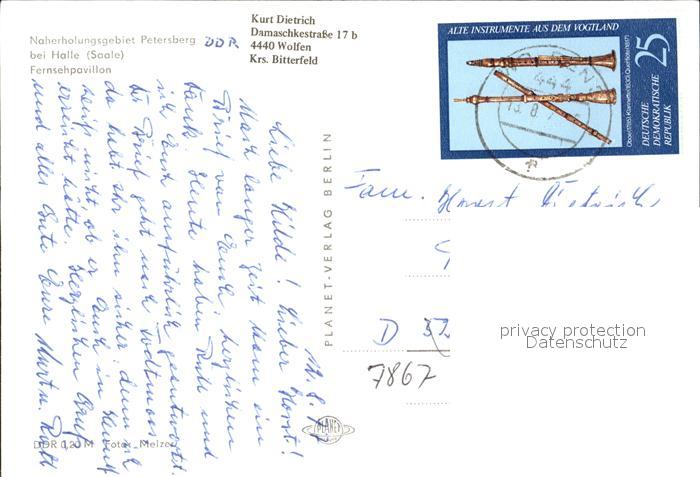 Naherholungsgebiet Petersberg
bei Halle (Saale)
Fernsehpavillon
DDR
Kurt Dietrich
Damaschkestraße 17 b
4440 Wolfen
Krs. Bitterfeld
ALTE INSTRUMENTE AUS DEM VOGTLAND
25
DEUTSCHE
DEMOKRATISCHE
REPUBLIK
444
Liebe Hilde! Lieber Horst!
Nach langer Zeit kam ein
Brief von Euch, herzlichen
Dank. Heute haben Ruth und
ich Euch ausführlich geantwortet.
Der Brief geht nach
da habt Ihr ihn sicher, denn ich
weiß nicht ob er Euch in
erreicht hätte. Herzlichen Gruß
und alles Gute Eure Martin, Ruth
PLANET-VERLAG BERLIN
Fam. Horst Dietrich
D 52
7867
privacy protection
Datenschutz
PLANET
DDR 0,20 M Foto: Melzer